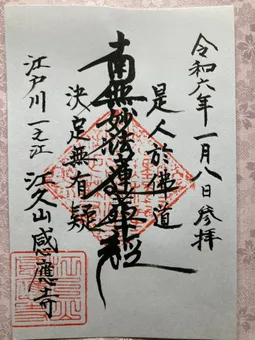 令和六年一月八日參拝
是人於佛道
南無妙法蓮華経
決定無有疑
江戸川一之江
江久山感應寺